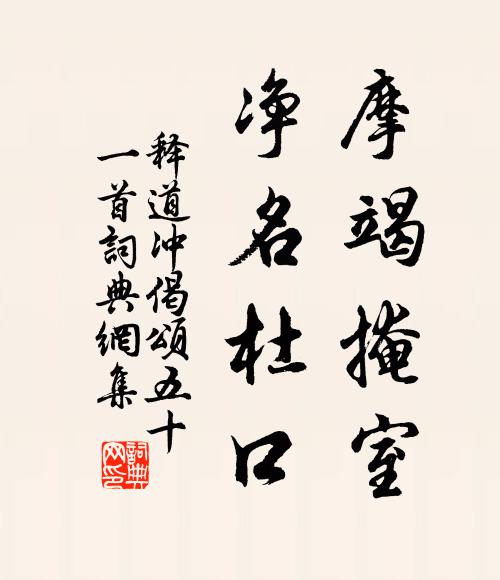 摩竭掩室
净名杜口
释道冲偈頌五十
一首詞典網集
詞典网印